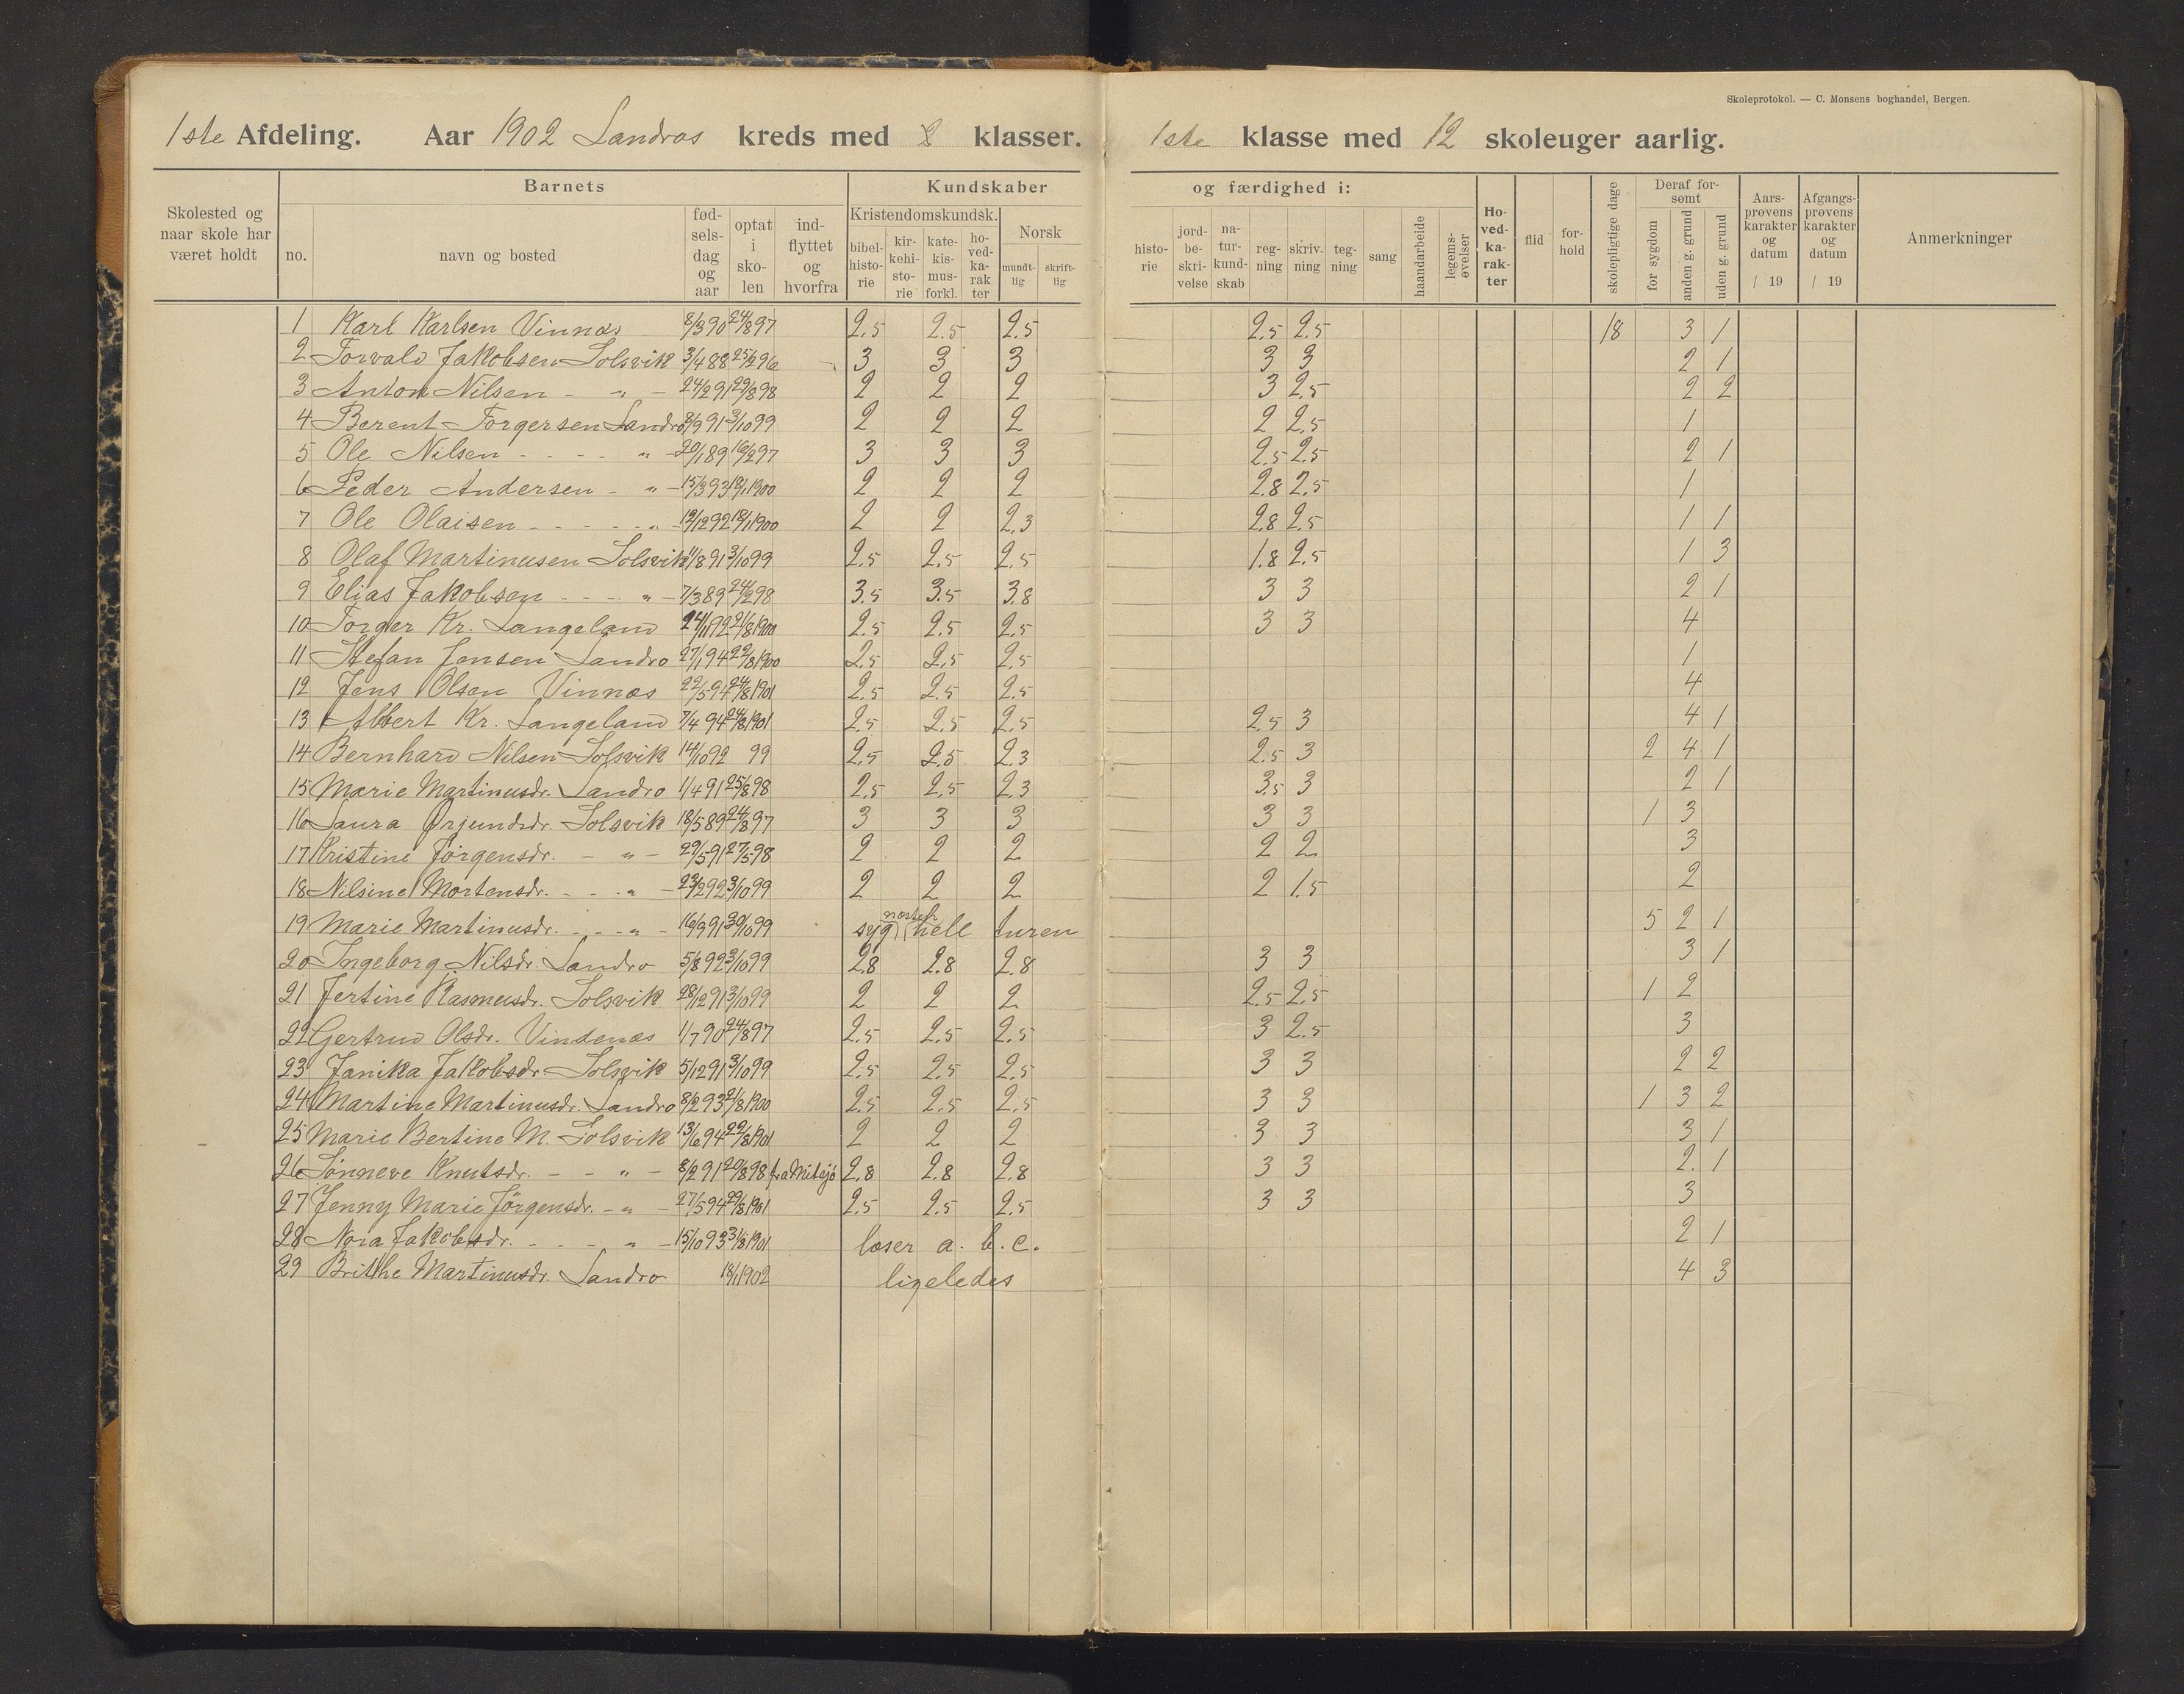 Skoleprotokol. — C. Monsens boghandel, Bergen.
1ste Afdeling. Aar 1902 Landros kreds med 2 klasser. 1ste klasse med 12 skoleuger aarlig.
Skolested og naar skole har været holdt
Barnets
no.
navn og bosted
fødselsdag og aar
optat i skolen
indflyttet og hvorfra
Kundskaber
Kristendomskundsk.
bibelhistorie
kirkehistorie
katekismusforkl.
hovedkarakter
Norsk
mundtlig
skriftlig
og færdighed i:
historie
jordbeskrivelse
naturkundskab
regning
skrivning
tegning
sang
haandarbeide
legemsøvelser
Hovedkarakter
flid
forhold
skolepligtige dage
Deraf forsømt
for sygdom
anden g. grund
uden g. grund
Aarsprøvens karakter og datum / 19
Afgangsprøvens karakter og datum / 19
Anmerkninger
1 Karl Karlsen Vinnæs 8/3 90 24/8 97 2.5 2.5 2.5 2.5 2.5 18 3 1
2 Torvald Jakobsen Solsvik 3/4 88 25/2 96 3 3 3 3 3 2 1
3 Anton Nilsen - " - 24/2 91 29/8 98 2 2 2 3 2.5 2 2
4 Berent Torgersen Landro 8/9 91 3/10 99 2 2 2 2 2.5 1
5 Ole Nilsen - - - - " - 20/1 89 16/2 97 3 3 3 2.5 2.5 2 1
6 Peder Andersen - " - 15/3 93 18/1 1900 2 2 2 2.8 2.5 1
7 Ole Olaisen - - - - - " - 19/12 92 18/1 1900 2 2 2.3 2.8 2.5 1 1
8 Olaf Martinusen Solsvik 11/8 91 3/10 99 2.5 2.5 2.5 1.8 2.5 1 3
9 Elias Jakobsen - - - " - 7/3 89 24/2 98 3.5 3.5 3.8 3 3 2 1
10 Torger Kr. Langeland 24/11 92 21/8 1900 2.5 2.5 2.5 3 3 4
11 Stefan Jensen Landro 27/1 94 22/8 1900 2.5 2.5 2.5 1
12 Jens Olsen Vinnæs 22/5 94 24/8 1901 2.5 2.5 2.5 4
13 Albert Kr. Langeland 7/4 94 24/8 1901 2.5 2.5 2.5 2.5 3 4 1
14 Bernhard Nilsen Solsvik 14/10 92 99 2.5 2.5 2.3 2.5 3 2 4 1
15 Marie Martinusdr. Landro 1/4 91 25/8 98 2.5 2.5 2.3 3.5 3 2 1
16 Laura Ørjundsdr. Solsvik 18/5 89 24/8 97 3 3 3 3 3 1 3
17 Kristine Jørgensdr. - " - 29/5 91 27/5 98 2 2 2 2 2 3
18 Nilsine Mortensdr. - - - " - 23/2 92 3/10 99 2 2 2 2 1.5 2
19 Marie Martinusdr. - - - " - 16/3 91 30/10 99 syg næsten hele turen 5 2 1
20 Ingeborg Nilsdr. Landro 5/8 92 3/10 99 2.8 2.8 2.8 3 3 3 1
21 Jertine Rasmusdr. Solsvik 28/12 91 3/10 99 2 2 2 2.5 2.5 1 2
22 Gertrud Olsdr. Vindenæs 1/7 90 24/8 97 2.5 2.5 2.5 3 2.5 3
23 Janika Jakobsdr. Solsvik 5/12 91 3/10 99 2.5 2.5 2.5 3 3 2 2
24 Martine Martinusdr. Landro 8/2 93 21/8 1900 2.5 2.5 2.5 3 3 1 3 2
25 Marie Bertine M. Solsvik 13/6 94 22/8 1901 2 2 2 3 3 3 1
26 Sønneve Knutsdr. - - " - 8/2 91 20/8 98 fra 2.8 2.8 2.8 3 3 2. 1
27 Jenny Marie Jørgensdr. - " - 27/5 94 29/8 1901 2.5 2.5 2.5 3 3 3
28 Nora Jakobsdr. - - - " - 15/10 93 31/8 1901 læser a. b. c. 2 1
29 Brithe Martinusdr. Landro 18/1 1902 ligeledes 4 3